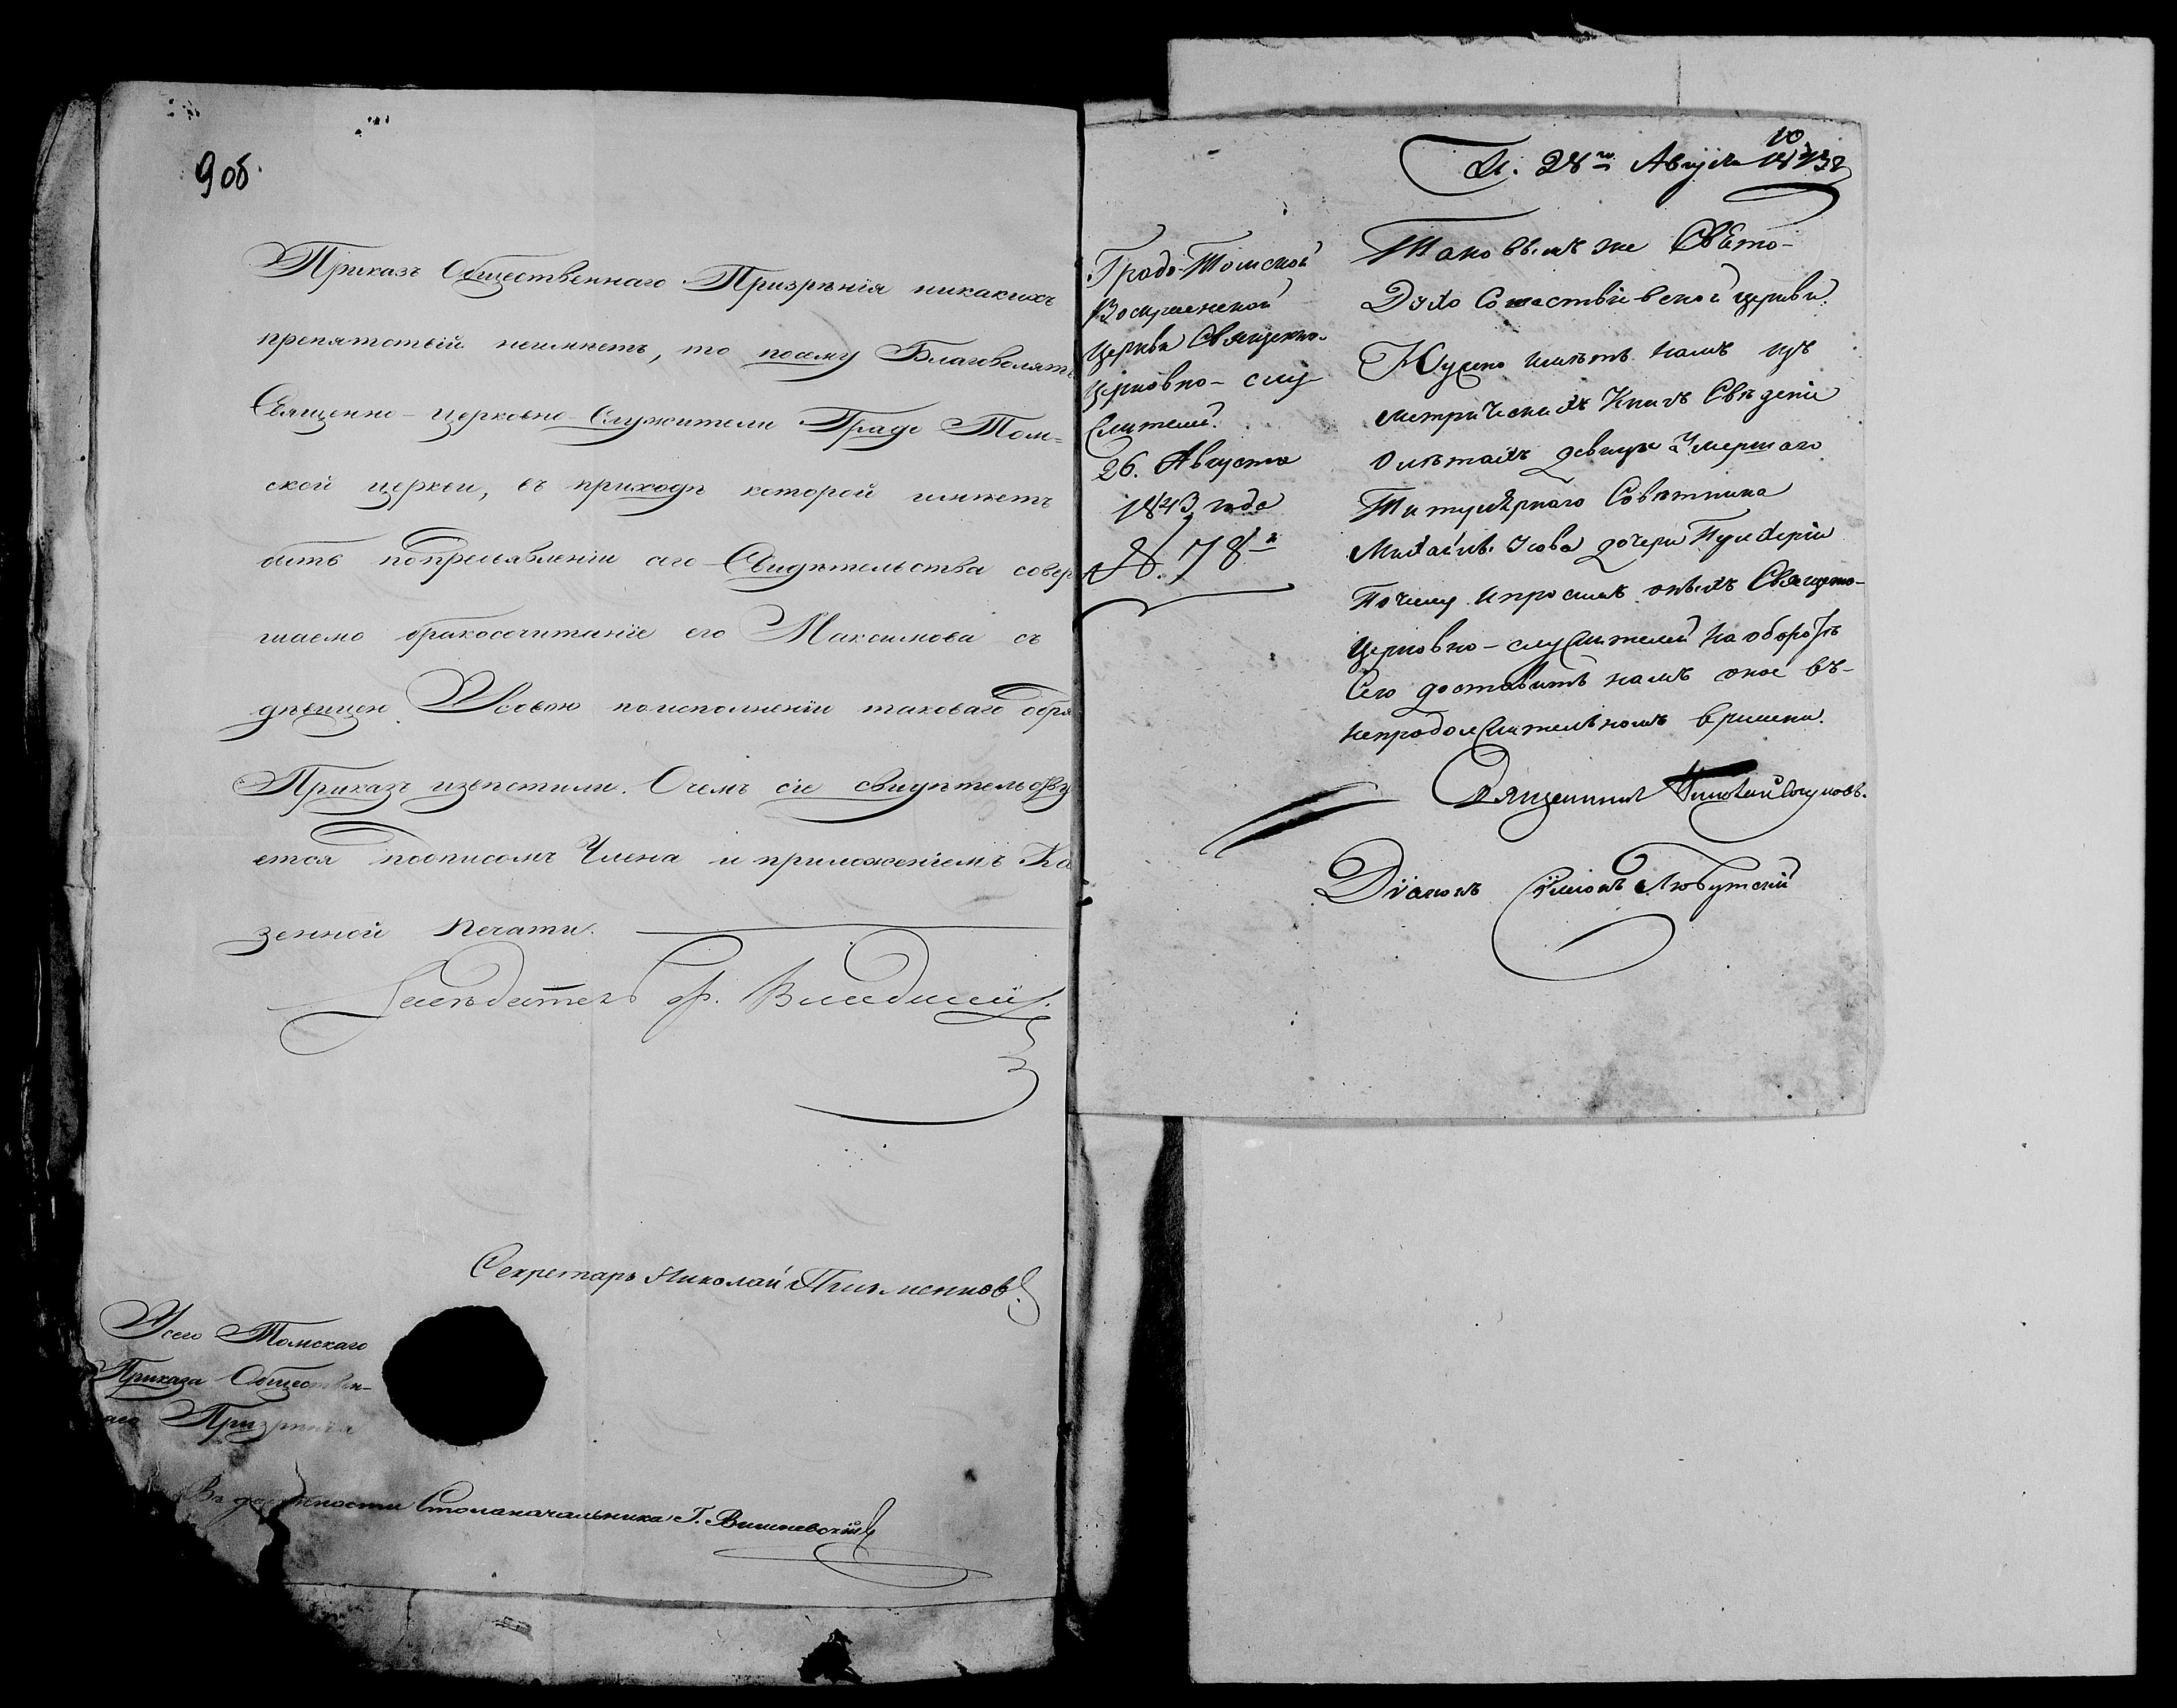 9 об.
Приказъ Общественнаго Призрѣнія никакихъ
препятствій неимѣетъ, то посему Благоволятъ
Священно-церковно-Служители Градо Том=
ской церкви, въ приходѣ которой имѣетъ
быть попредъявленіи сего Свидѣтельства совер
шаемо бракосочитаніе его Максимова съ
дѣвицею Усовою поисполненіи таковаго обря
Приказъ извѣстили. Очемъ сіе свидѣтельству
ется подписомъ Члена и приложеніемъ Ка
зенной печати.
Засѣдатель
Секретарь Николай
Усего Томскаго
Приказа Обществен-
аго Призрѣнія
Въ должности Столоначальника Г. Вишневскій
10
П. 28го Августа 1843
Градо-Томской
Воскресенской
Церкви Священно-
Церковно-слу
жителей.
26. Августа
1843 года
№. 78й
Таковымъ же Свято-
Духо Сошествіевской церкви.
Нужно имѣть намъ изъ
метрическихъ Книгъ Свѣденіе
олѣтахъ дѣвицы Умершаго
Титулярнаго Совѣтника
Михаилѣ Усова дочери Пулхеріи
Почему и просимъ онѣхъ Священо-
Церковно-служителей на оборотѣ
Сего доставить намъ оное въ-
непродолжительномъ времени.
Священникъ
Діаконъ Симіонъ Любутскій